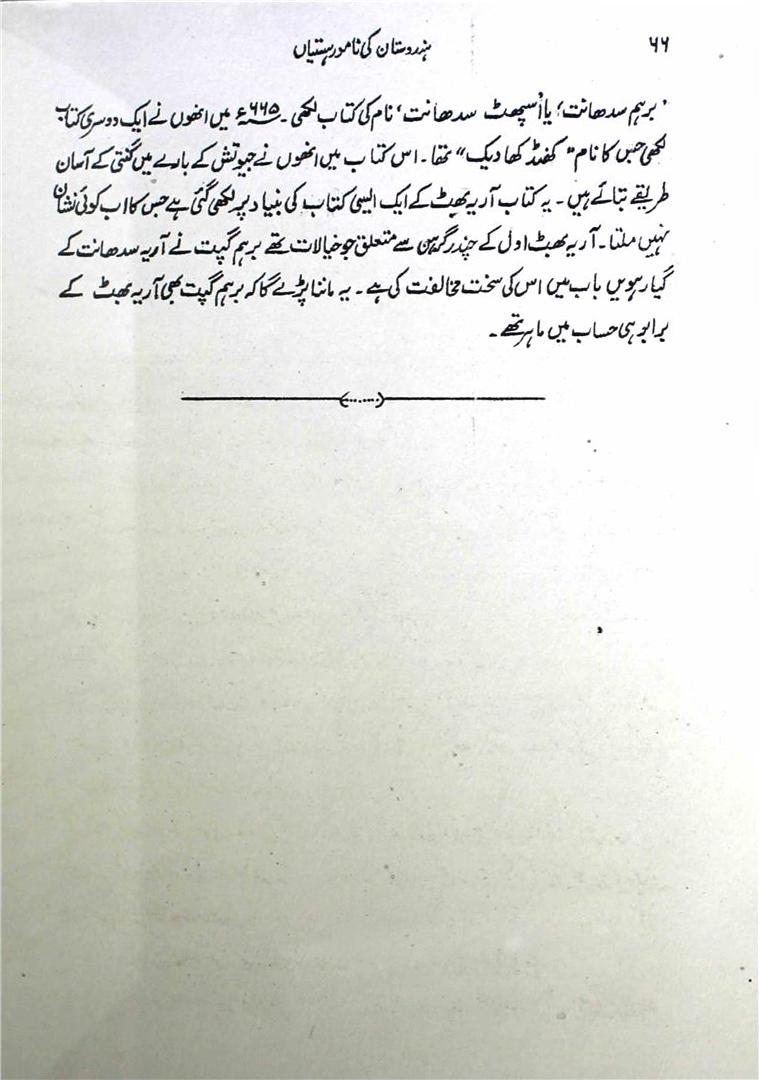 ۶۶
ہندوستان کی نامور ہستیاں
’برہم سدھانت‘ یا اُسپھٹ سدھانت‘ نام کی کتاب لکھی۔ ۶۶۵ء میں انھوں نے ایک دوسری کتاب
لکھی جس کا نام ”کھنڈ کھادیک“ تھا۔ اس کتاب میں انھوں نے جیوتش کے بارے میں گنتی کے آسان
طریقے بتائے ہیں۔ یہ کتاب آریہ بھٹ کے ایک ایسی کتاب کی بنیاد پر لکھی گئی ہے جس کا اب کوئی نشان
نہیں ملتا۔ آریہ بھٹ اول کے چندر گرہن سے متعلق جو خیالات تھے برہم گپت نے آریہ سدھانت کے
گیارہویں باب میں اس کی سخت مخالفت کی ہے۔ یہ ماننا پڑے گا کہ برہم گپت بھی آریہ بھٹ کے
برابر ہی حساب میں ماہر تھے۔